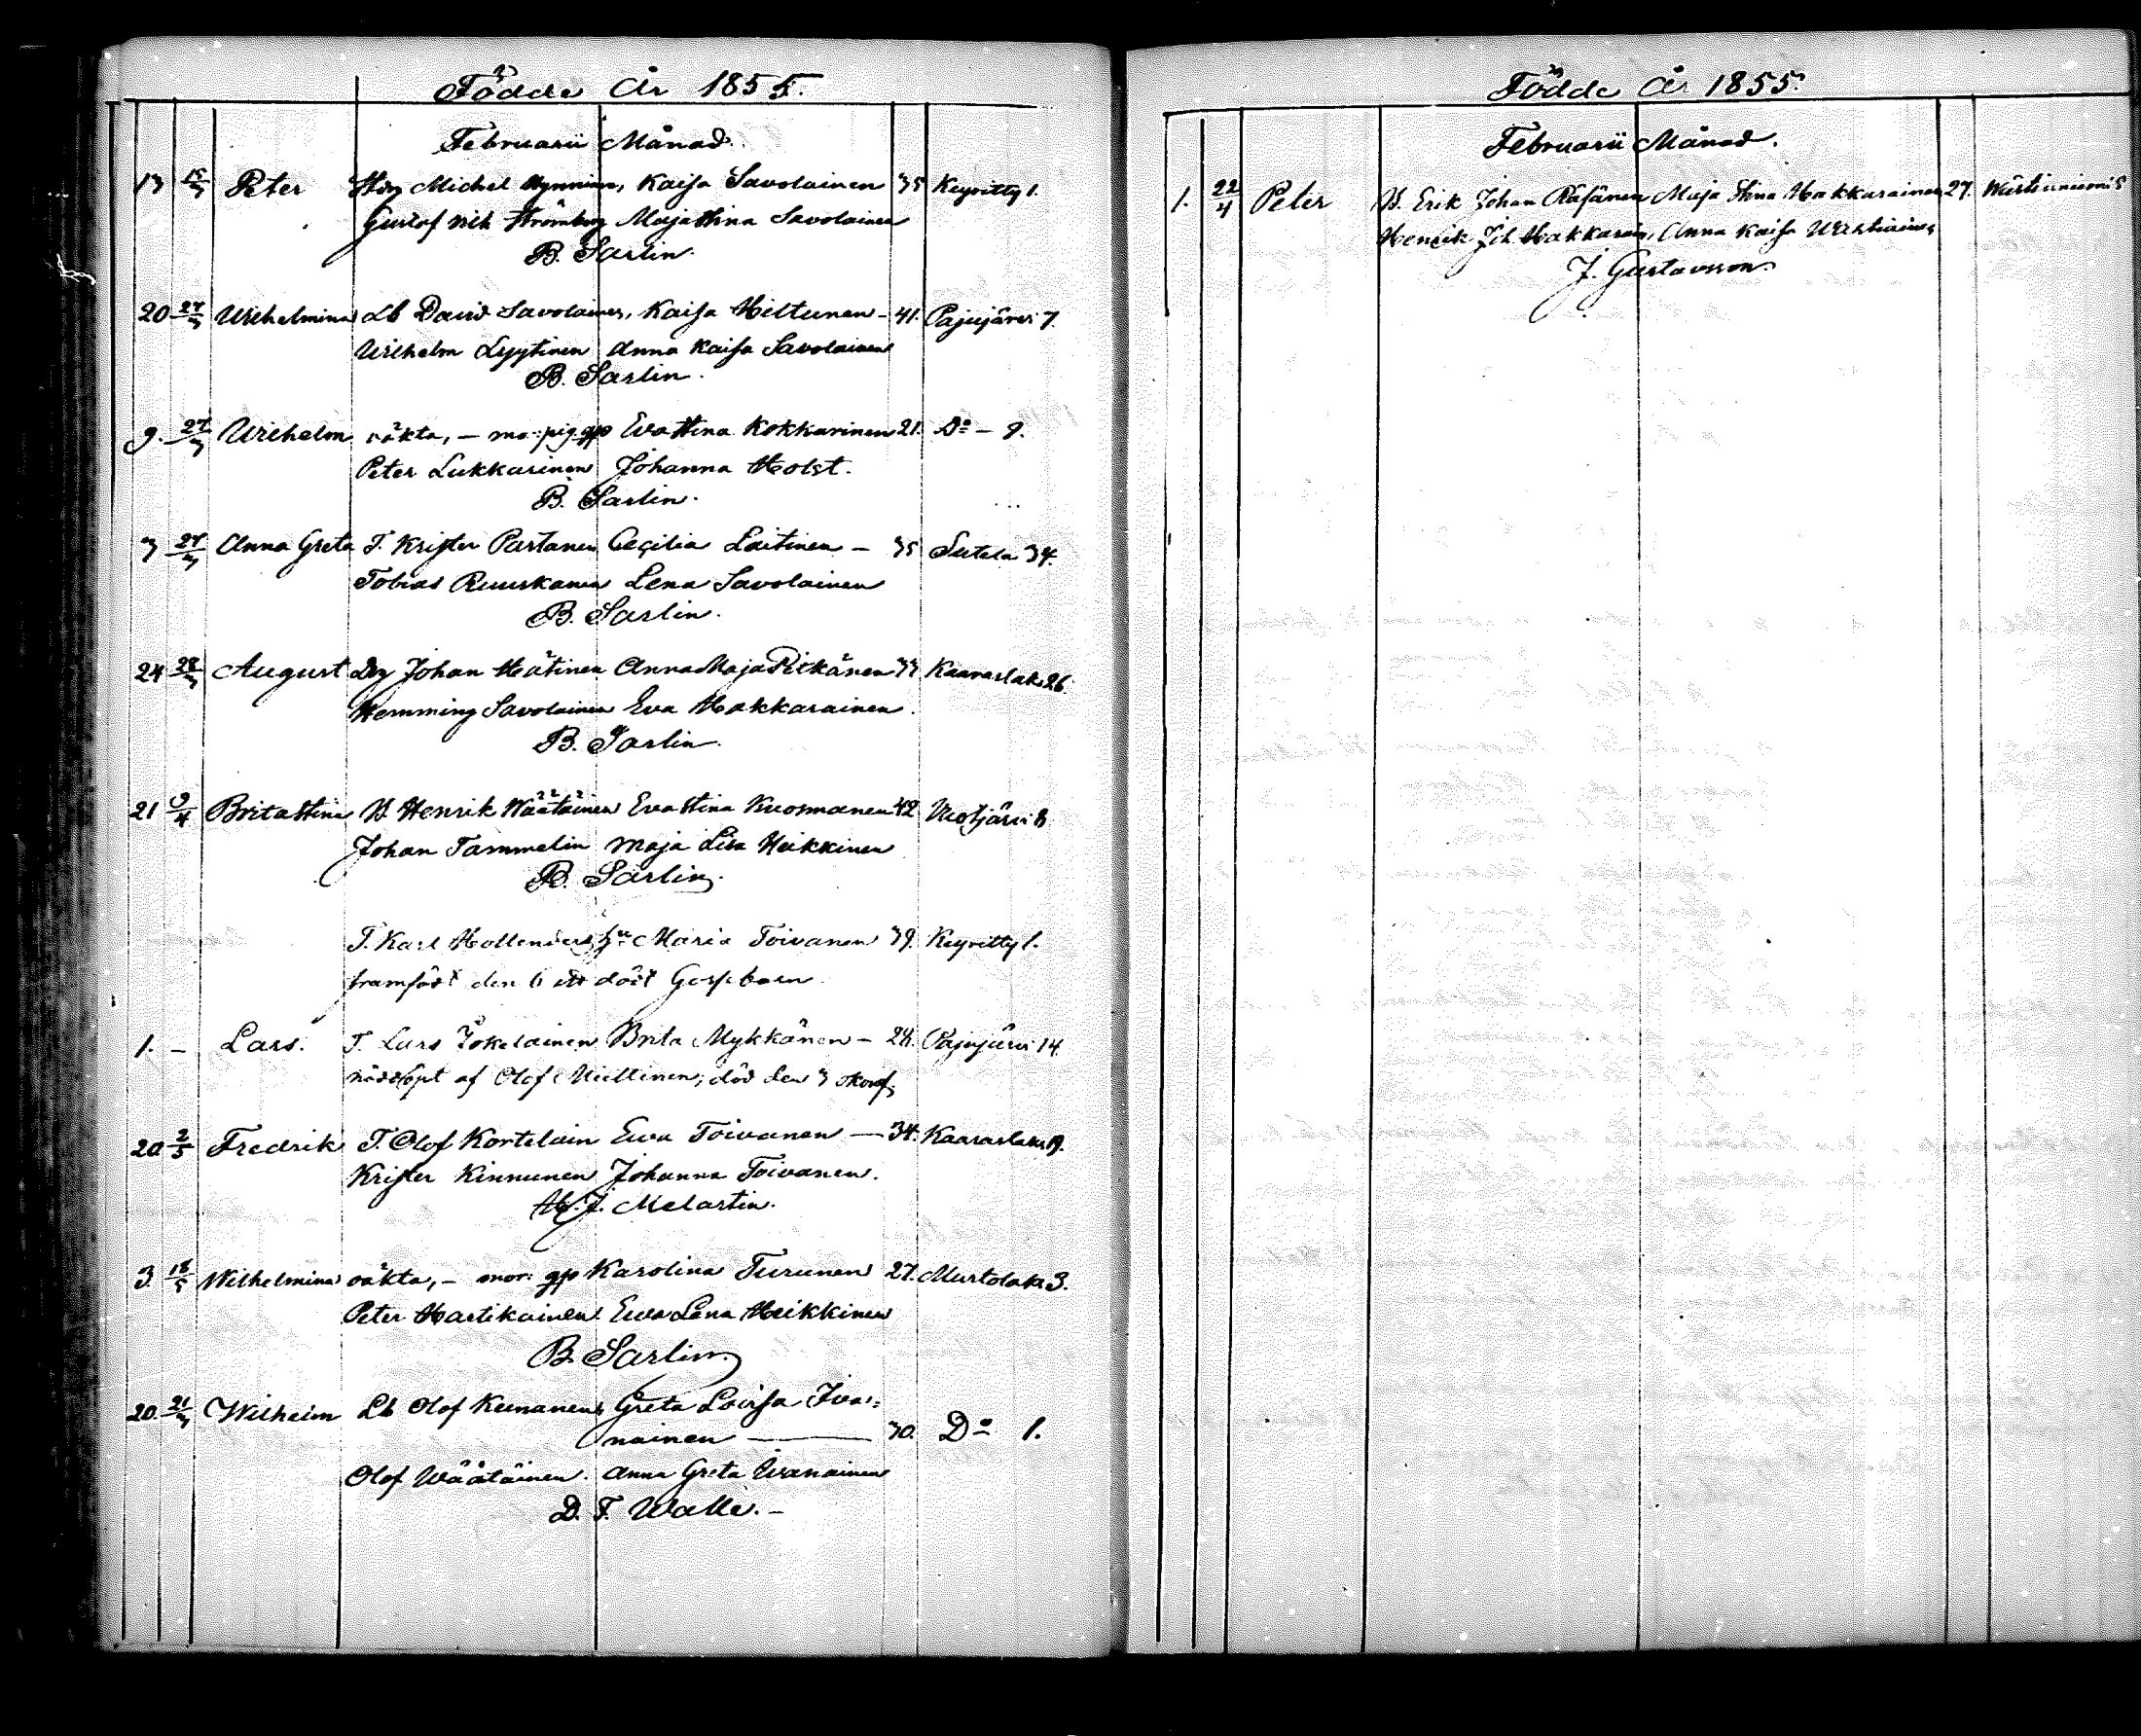 Födde År 1855.
Februarii Månad.
13 15/3 Peter Michel Hynninen, Kaisa Savolainen 35 Keyritty 1.
Gustaf Strömberg Maja Stina Savolainen
B. Sarlin.
20 27/3 Wilhelmina Lb David Savolainen, Kaisa Hiltunen - 41. Pajujärvi 7.
Wilhelm Lyytinen Anna Kaisa Savolainen
B. Sarlin.
9. 27/3 Wilhelm oäkta, - Eva Stina Kokkarinen 21. Do - 9.
Peter Lukkarinen Johanna Holst.
B. Sarlin.
3 27/3 Anna Greta T. Krister Partanen Cecilia Laitinen - 35 Sutela 34.
Tobias Ruuskanen Lena Savolainen
B. Sarlin.
24 28/3 August Johan Hätinen Anna Maja Pitkänen 33 Kaaraslaks 26.
Hemming Savolainen Eva Hakkarainen
B. Sarlin.
21 9/4 Brita Stina B. Henrik Wäätäinen Eva Stina Kuosmanen 42 Muotjärvi 8
Johan Tammelin Maja Lisa Heikkinen
B. Sarlin.
T. Karl Hollenders hu Maria Toivanen 39. Keyritty 1.
framfödt den 6 ett dödt Gossebarn
1. - Lars. T. Lars Jokelainen Brita Mykkänen - 24. Pajujärvi 14.
nöddöpt af Olof Miettinen, död den 3
20 2/5 Fredrik T. Olof Kortelain Ewa Toivanen - 34. Kaaraslaks 19.
Krister Kinnunen Johanna Toivanen.
J. Melartin.
3 18/5 Wilhelmina oäkta, - mor: Karolina Turunen 27. Murtolaks 3.
Peter Hartikainen Ewa Lena Heikkinen
B. Sarlin.
20. 21/3 Wilhelm Lb Olof Keinanen Greta Lovisa Iva=
nainen - 30. Do 1.
Olof Wäätäinen. Anna Greta Iwanainen
D. F. Walle. -
Födde År 1855.
Februarii Månad.
1. 22/4 Peter B. Erik Johan Räsänen Maja Stina Hakkarainen 27.
Henrik Joh. Hakkarain, Anna Kaisa
J. Gustavsson.